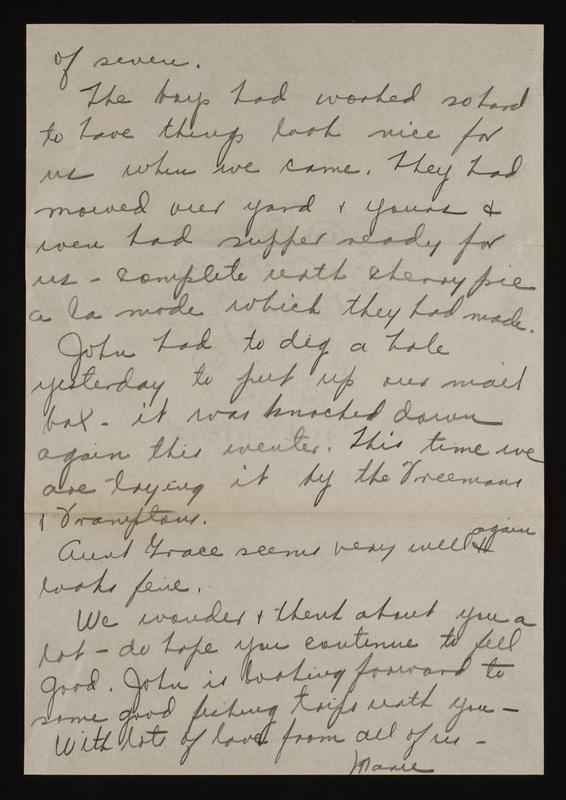 of seven.
The boys had worked so hard
to have things look nice for
us when we came. They had
mowed our yard & yours &
even had supper ready for
us - complete with cherry pie
a la mode which they had made.
John had to dig a hole
yesterday to put up our mail
box - it was knocked down
again this winter. This time we
are trying it by the Freemans
& Framptons.
Aunt Grace seems very well & again
looks fine.
We wonder & think about you a
lot - do hope you continue to fell
good. John is looking forward to
some good fishing trips with you -
With lots of love from all of us -
Marie